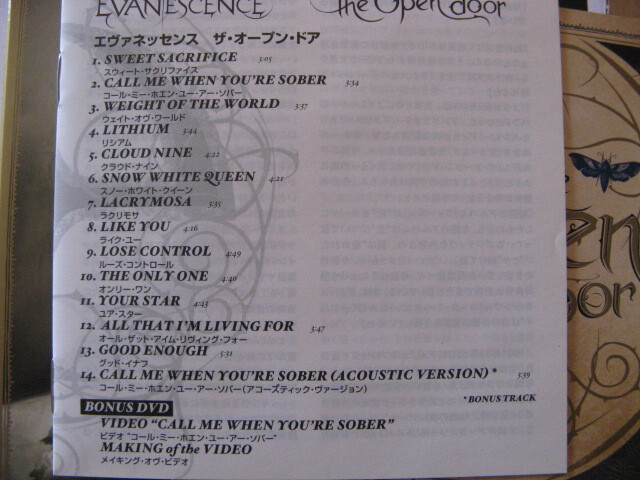 EVANESCENCE the Open door
エヴァネッセンス ザ・オープン・ドア
1. SWEET SACRIFICE 3:05
スウィート・サクリファイス
2. CALL ME WHEN YOU'RE SOBER 3:34
コール・ミー・ホエン・ユー・アー・ソバー
3. WEIGHT OF THE WORLD 3:37
ウェイト・オヴ・ワールド
4. LITHIUM 3:44
リシアム
5. CLOUD NINE 4:22
クラウド・ナイン
6. SNOW WHITE QUEEN 4:21
スノー・ホワイト・クイーン
7. LACRYMOSA 3:35
ラクリモサ
8. LIKE YOU 4:16
ライク・ユー
9. LOSE CONTROL 4:49
ルーズ・コントロール
10. THE ONLY ONE 4:40
オンリー・ワン
11. YOUR STAR 4:43
ユア・スター
12. ALL THAT I'M LIVING FOR 3:47
オール・ザット・アイム・リヴィング・フォー
13. GOOD ENOUGH 5:31
グッド・イナフ
14. CALL ME WHEN YOU'RE SOBER (ACOUSTIC VERSION) * 3:39
コール・ミー・ホエン・ユー・アー・ソバー(アコーズティック・ヴァージョン)
*BONUS TRACK
BONUS DVD
VIDEO “CALL ME WHEN YOU'RE SOBER”
ビデオ “コール・ミー・ホエン・ユー・アー・ソバー”
MAKING of the VIDEO
メイキング・オヴ・ビデオ
en
oor